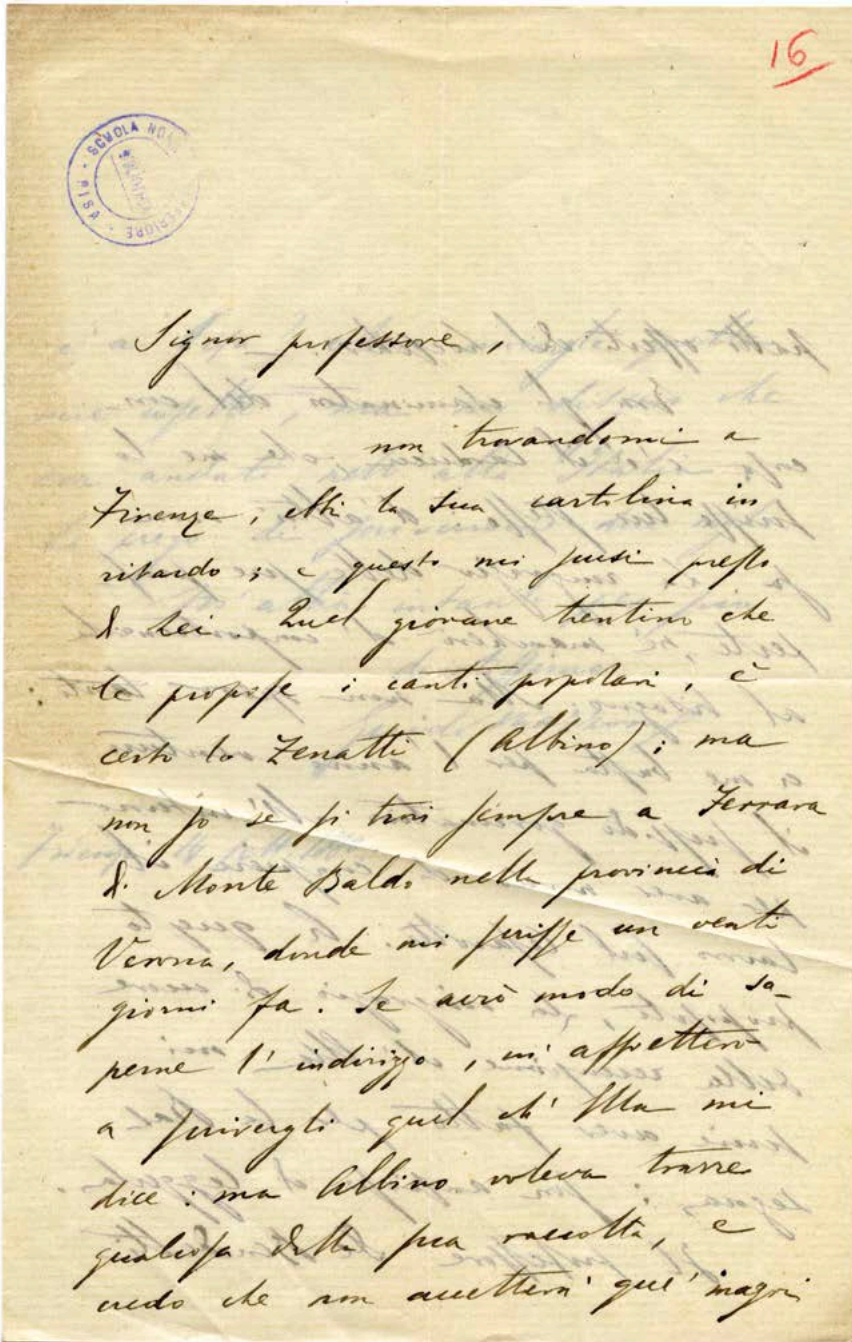 16
SCUOLA NOR
PERIORE
PISA
Signor professore,
non trovandomi a
Firenze, ebbi la sua cartolina in
ritardo; e questo mi scusi presso
di Lei. Quel giovane trentino che
le propose i canti popolari, è
certo lo Zenatti (Albino); ma
non so se si trovi sempre a Ferrara
di Monte Baldo nella provincia di
Verona, donde mi scrisse un venti
giorni fa. Se avrò modo di sa-
perne l'indirizzo, m'affretterò
a scrivergli quel ch'Ella mi
dice: ma Albino voleva trarre
qualcosa della sua raccolta, e
credo che non accetterà que' magri